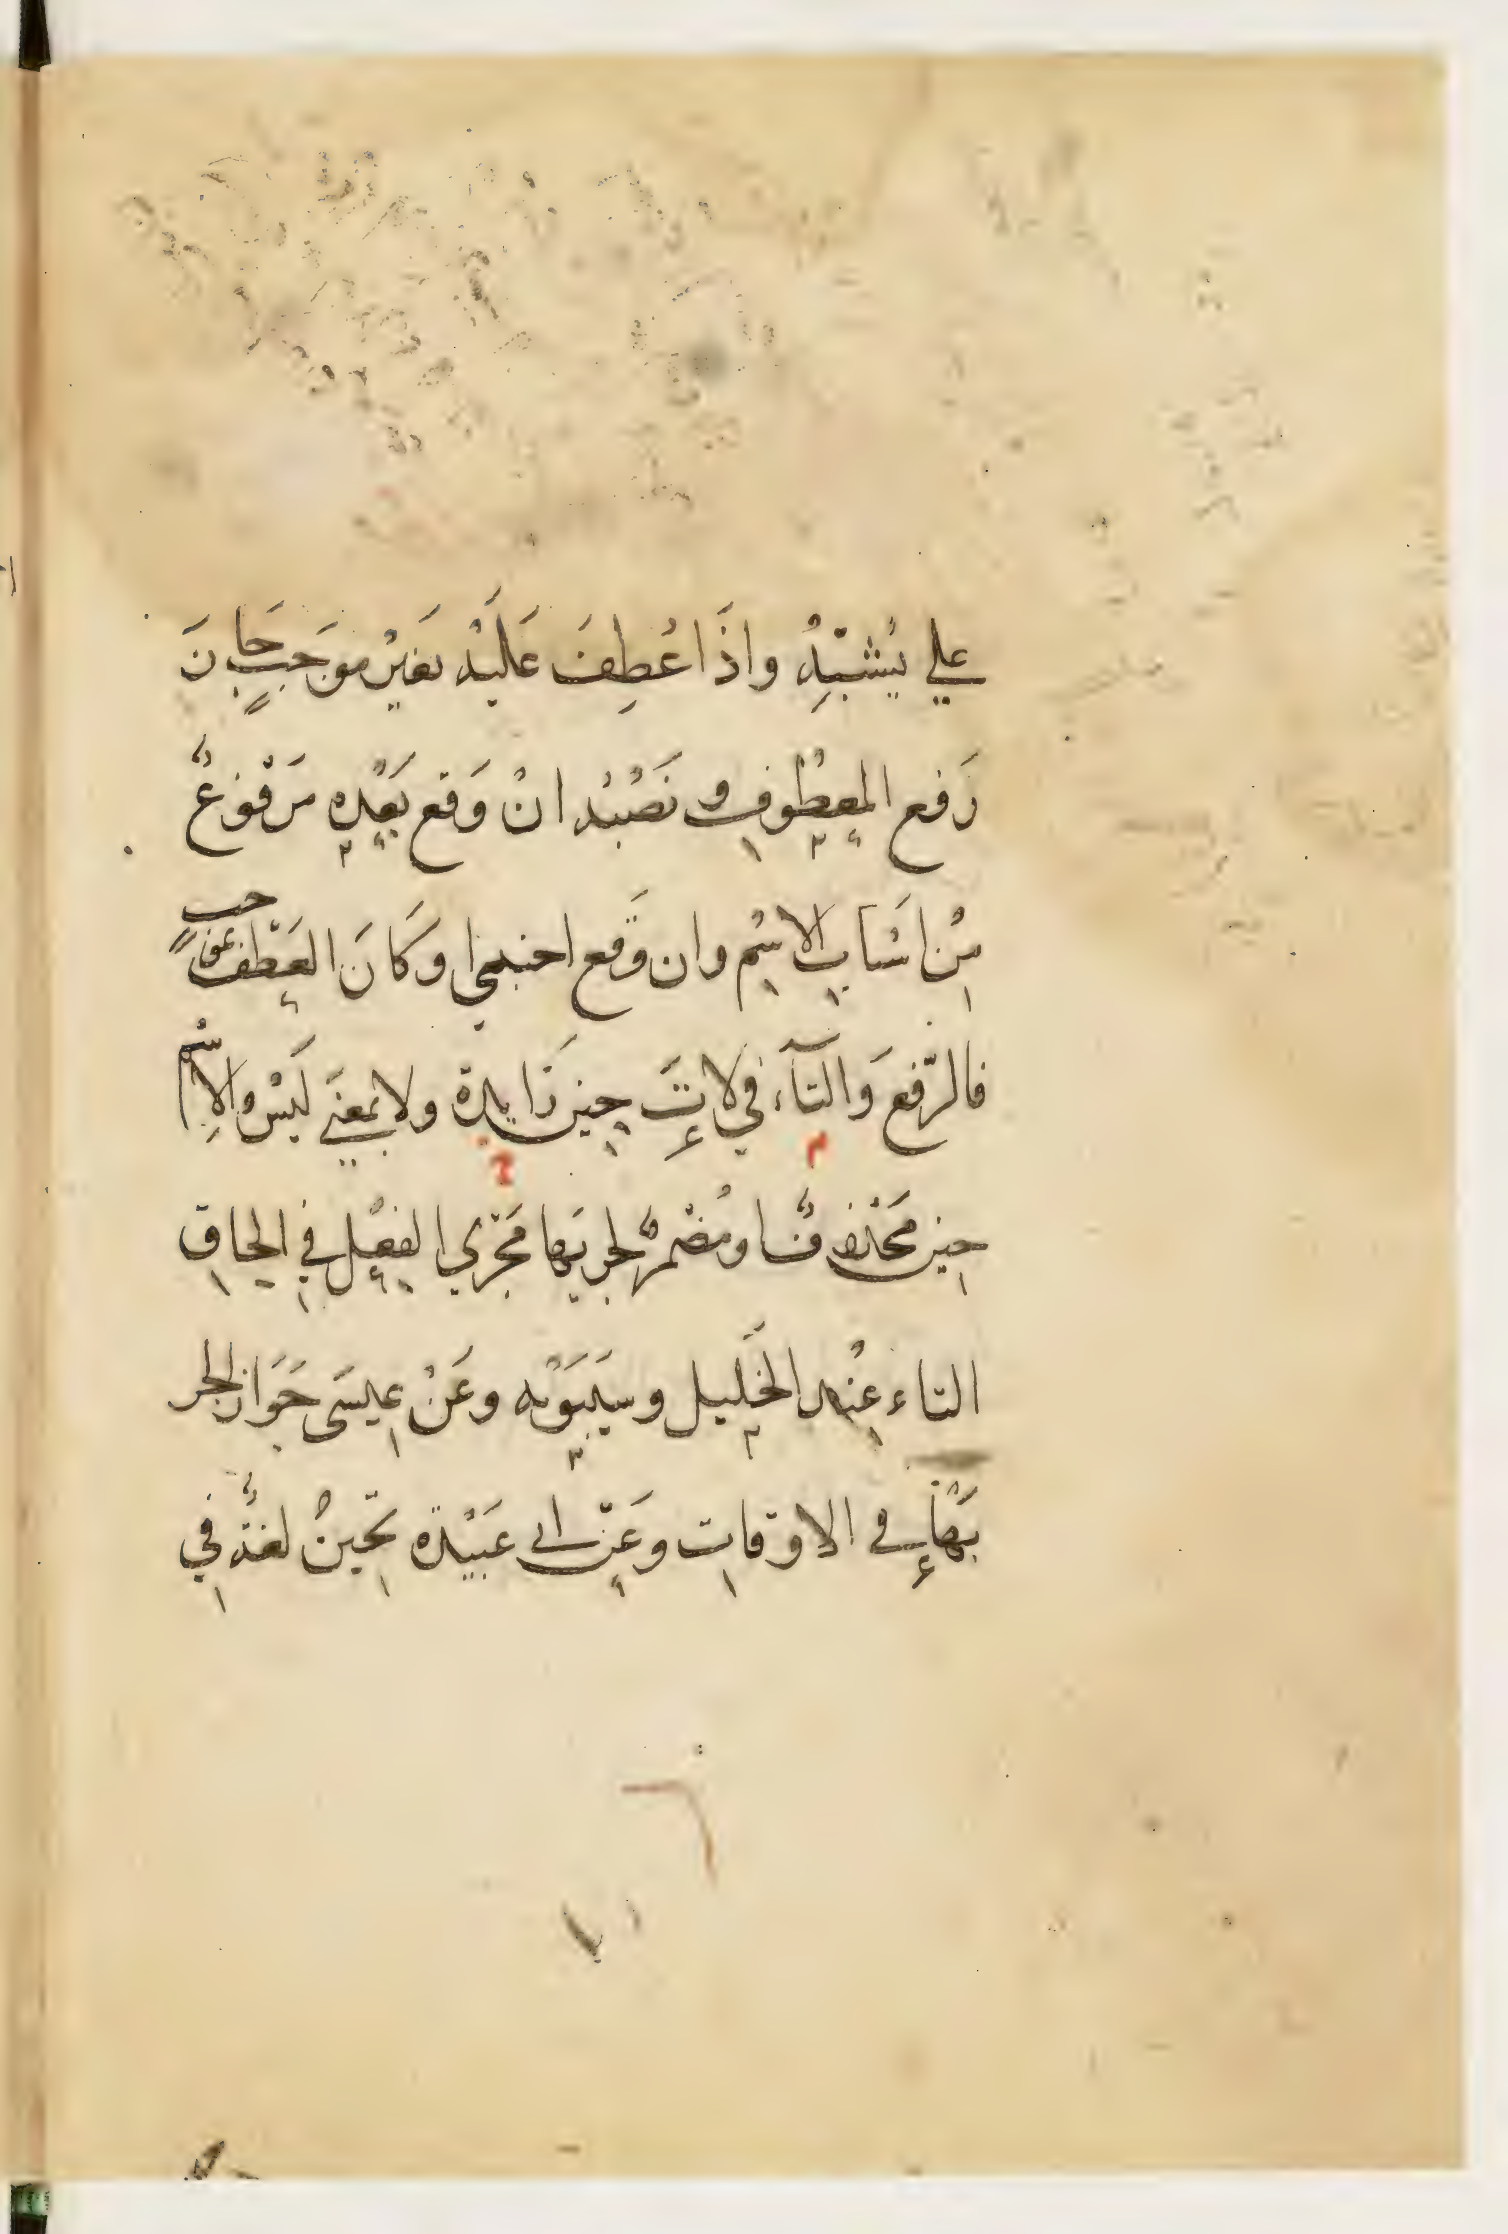 علي يُشْبِهُ واذَا عُطِفَ عَلَيْهِ بغَيْرِ موَجَبٍ جَازَ
رَفع المعْطُوفِ و نَصْبُهُ انْ وَقع بَعْدَه مَرْفُوعٌ
مِنْ اسْبَابِ الاسْمِ وان وَقع اجنبي وَكَانَ العَطْف بموجبٍ
فالرّفعَ وَالتآء في لاتَ حِين زَايدة ولا بمعنَي لَيْسَ والاِسْم
حين محَذوفًا ومُضْمرٌ لجريها مَجْرَي الفِعْل في الحِاقِ
التاء عِنْد الخَليل وسيَبَوَيْه وعَنْ عِيسَى جَوَاز الجر
بهَا في الاوْقات وعَنْ ابي عَبَيْدَه تَحّينُ لغةٌ في